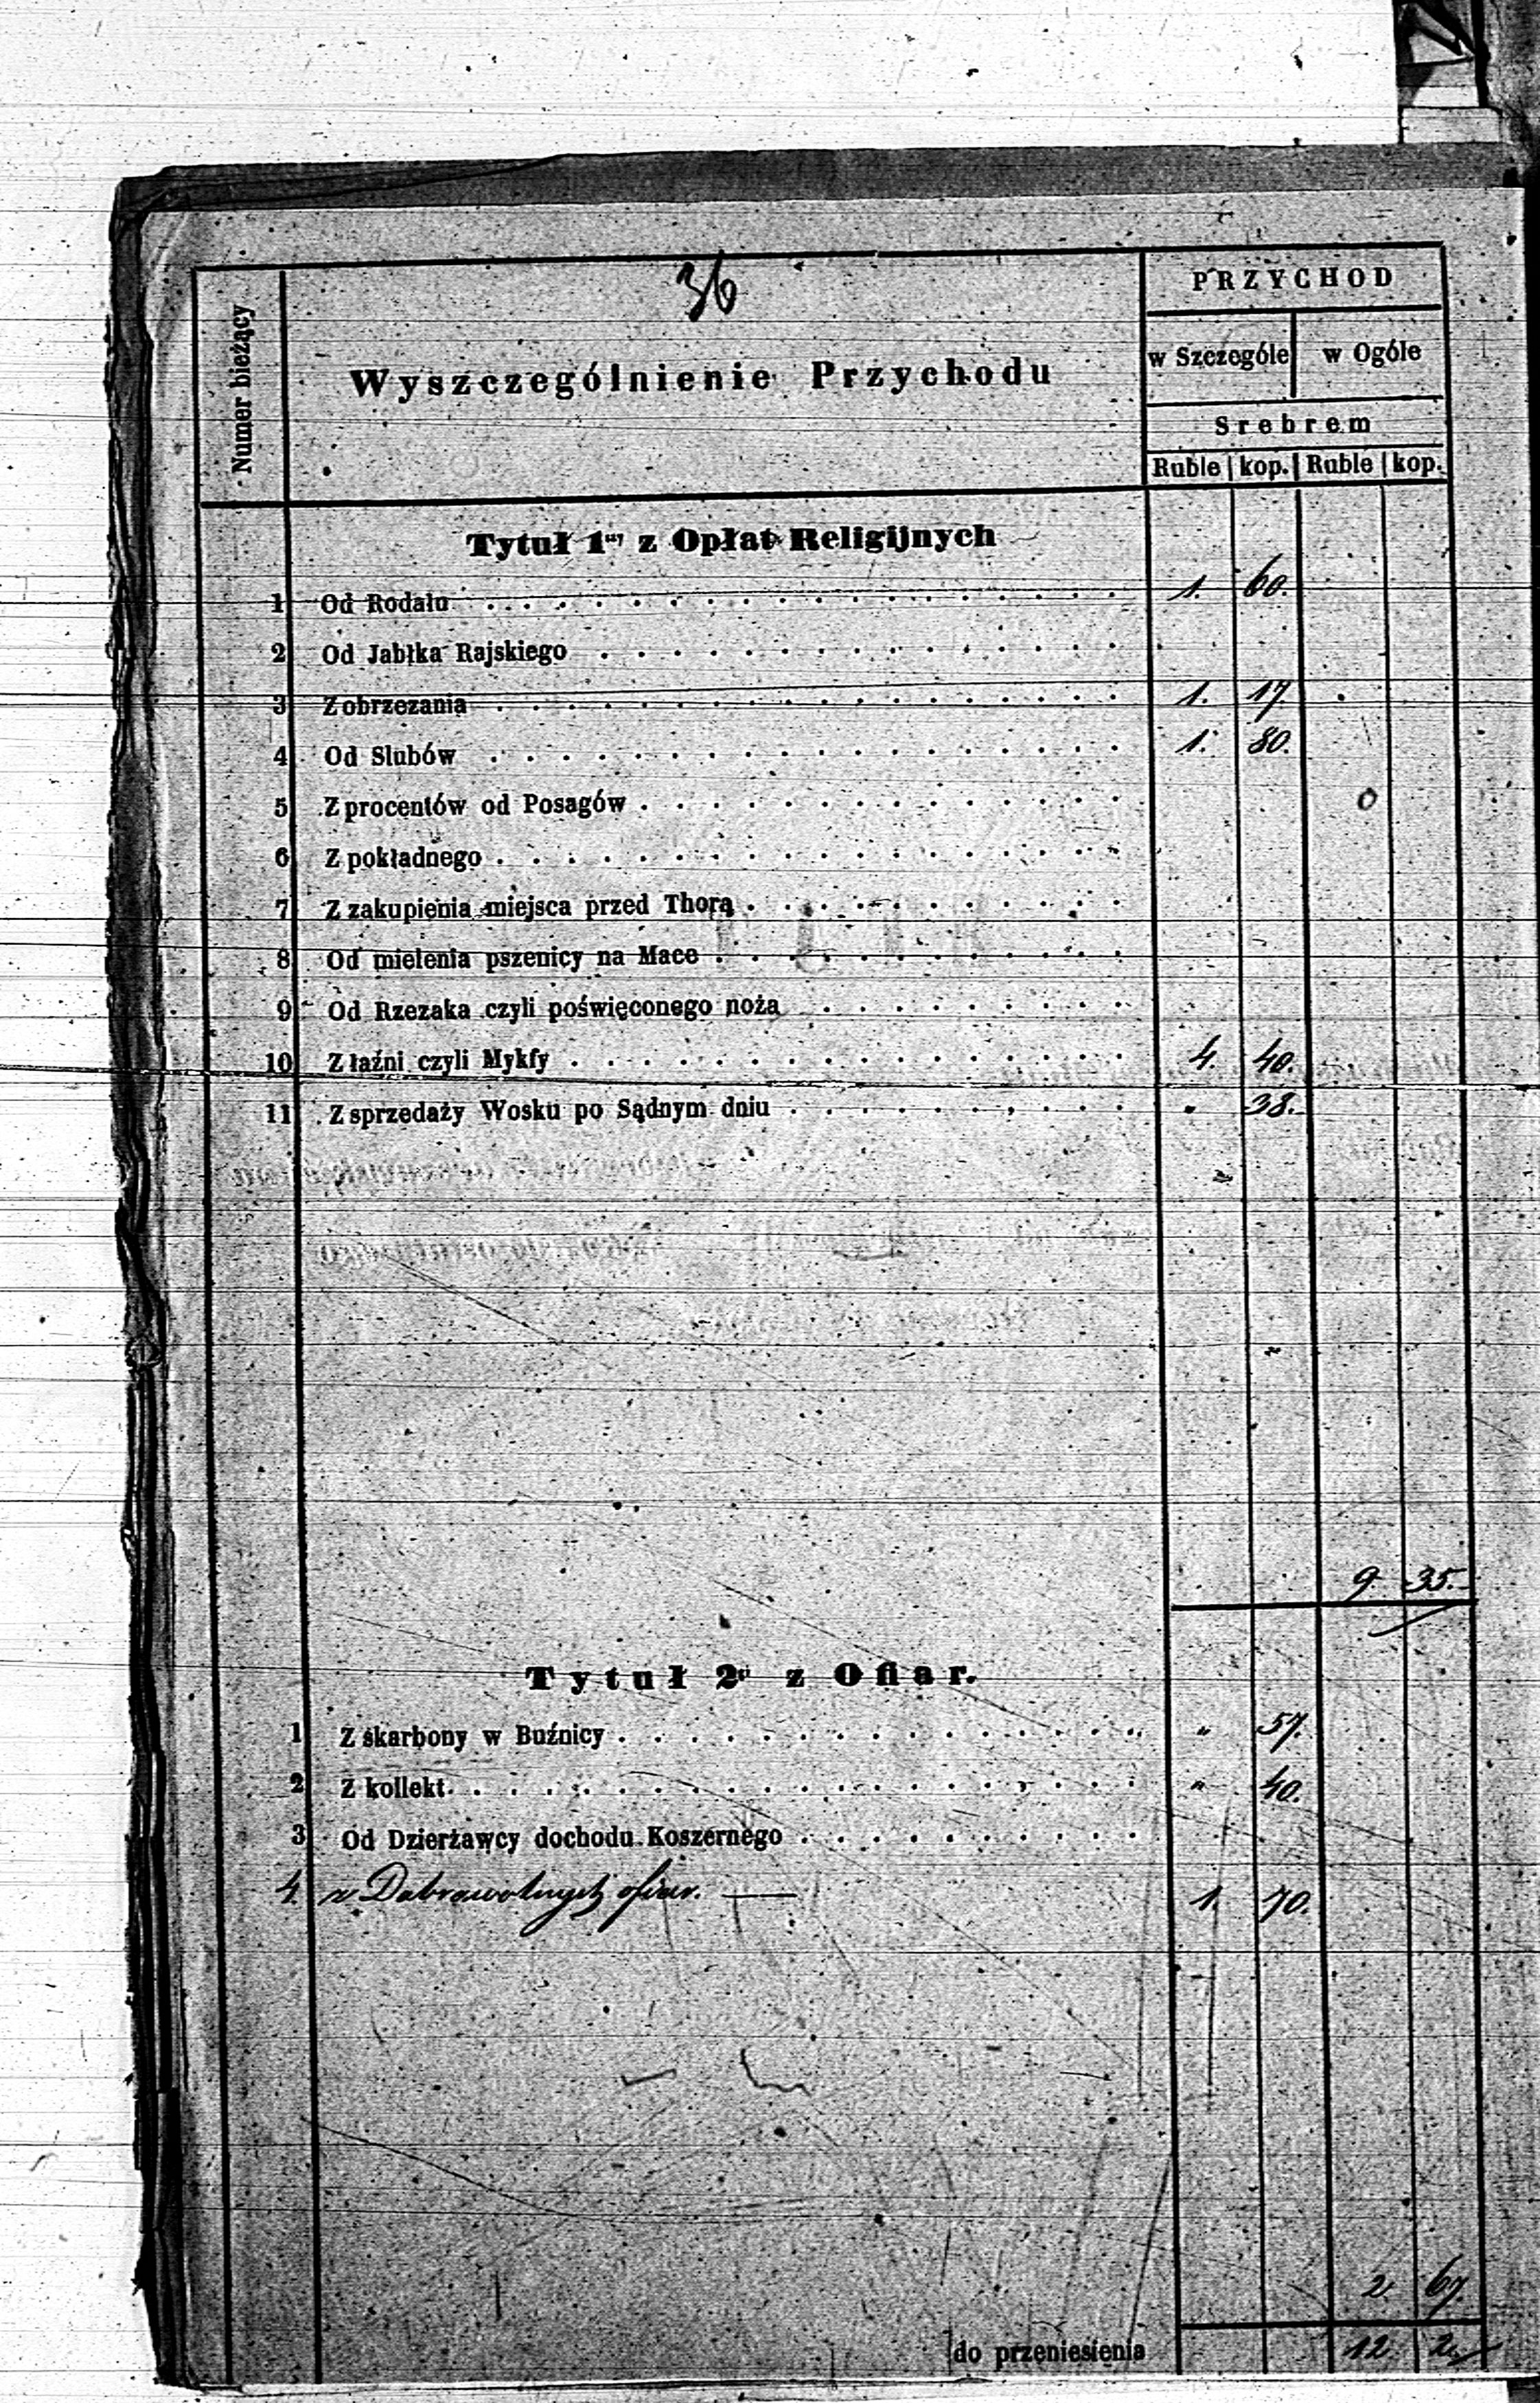 36
Numer bieżący
Wyszczególnienie Przychodu
PRZYCHOD
w Szczególe w Ogóle
Srebrem
Ruble kop. Ruble kop.
Tytuł 1ny z Opłat Religijnych
1 Od Rodału 1. 60.
2 Od Jabłka Rajskiego
3 Z obrzezania 1. 17.
4 Od Slubów 1. 80.
5 Z procentów od Posagów
6 Z pokładnego
7 Z zakupienia miejsca przed Thorą
8 Od mielenia pszenicy na Mace
9 Od Rzezaka czyli poświęconego noża
10 Z łaźni czyli Mykfy 4. 40.
11 Z sprzedaży Wosku po Sądnym dniu " 38.
9. 35.
Tytuł 2gi z Ofiar.
1 Z skarbony w Buźnicy " 57.
2 Z kollekt " 40.
3 Od Dzierżawcy dochodu Koszernego
4. z Dobrowolnych ofiar. 1. 70.
2. 67.
do przeniesienia 12. 2.